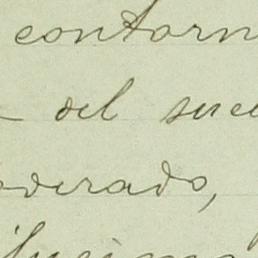 contorn
del suce
oderado,